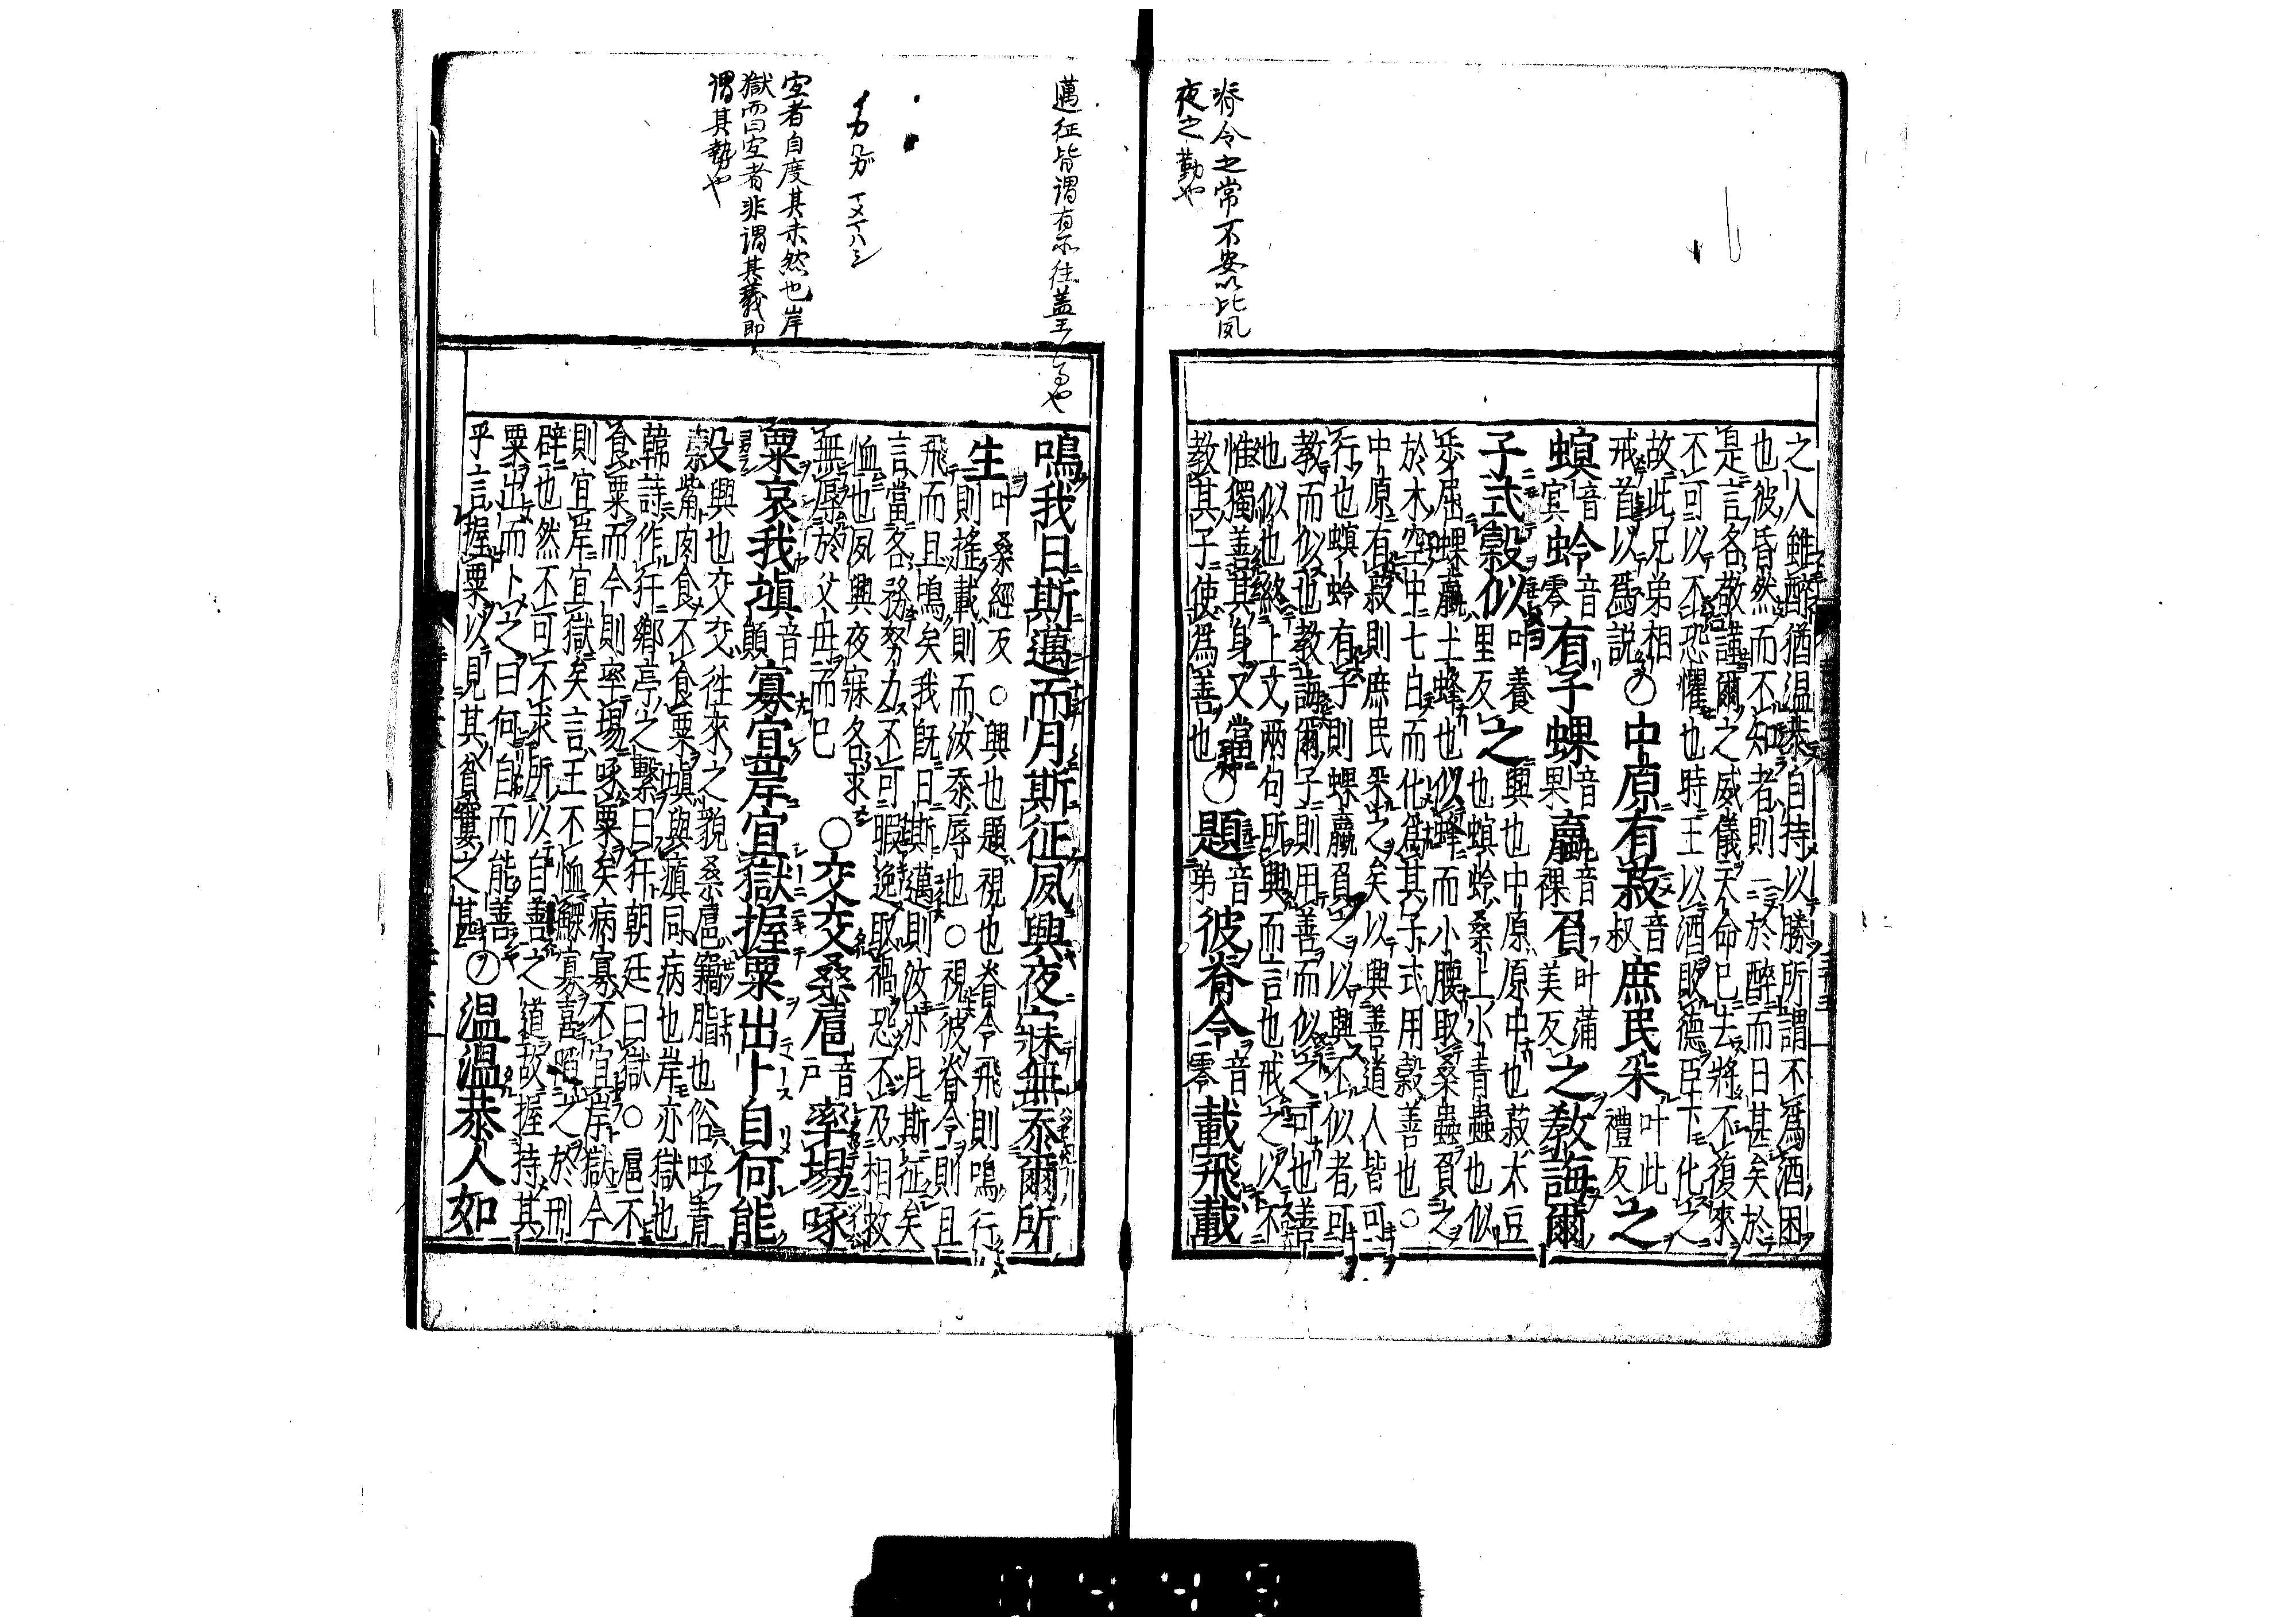 脊令之常不安以比夙
夜之勤也
之人雖醉猶温恭自持以勝所謂不爲酒困
也彼昏然而不知者則一於醉而日甚矣於
是言各敬謹爾之威儀天命已去將不復來
不可以不恐懼也時王以酒敗德臣下化之
故此兄弟相
戒首以爲説○中原有菽音叔庶民采叶此禮反之
螟音宾蛉音零有子蜾音果蠃音裸負叶蒲美反之教誨爾
子式穀似叶養里反之興也中原原中也菽大豆
也螟蛉桑上小青蟲也似
歩屈蜾蠃土蜂也似蜂而小腰取桑蟲負之
於木空中七日而化爲其子式用穀善也○
中原有菽則庶民采之矣以興善道人皆可
行也螟蛉有子則蜾蠃負之以興不似者可
教而似也教誨爾子則用善而似之可也善
也似也終上文兩句所興而言也戒之以不
惟獨善其身又當
教其子使爲善也○題音弟彼脊令音零載飛載
邁征皆謂有所往蓋
宜者自度其未然也岸
獄而曰宜者非謂其義即
謂其勢也
鳴我日斯邁而月斯征夙興夜寐無忝爾所
生叶桑經反○興也題視也脊令飛則鳴行
則搖載則而汝忝辱也○視彼脊令則且
飛而且鳴矣我既日斯邁則汝亦月斯征矣
言當各務努力不可暇逸取禍恐不及相救
恤也夙興夜寐各求
無辱於父母而已○交交桑扈音戸率場啄
粟哀我塡音顛寡宜岸宜獄握粟出卜自何能
穀興也交交往來之貌桑扈竊脂也俗呼青
觜肉食不食粟塡與瘨同病也岸亦獄也
韓詩作犴鄉亭之繫曰犴朝廷曰獄○扈不
食粟而今則率場啄粟矣病寡不宜岸獄今
則宜岸宜獄矣言王不恤鰥寡喜陷之於刑
辟也然不可不求所以自善之道故握持其
粟出而卜之曰何自而能善
乎言握粟以見其貧窶之甚○温温恭人如